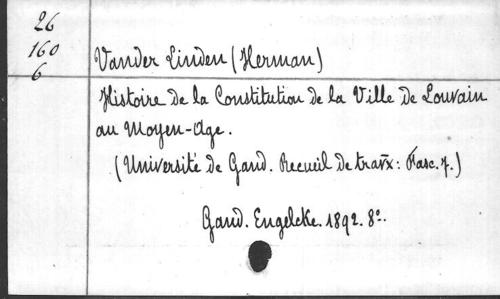 26
160
6
Vander Linden (Herman)
Histoire de la Constitution de la Ville de Louvain
au Moyen-Age.
(Université de Gand. Recueil de travx: Fasc. 7.)
Gand. Engelcke. 1892. 8º.